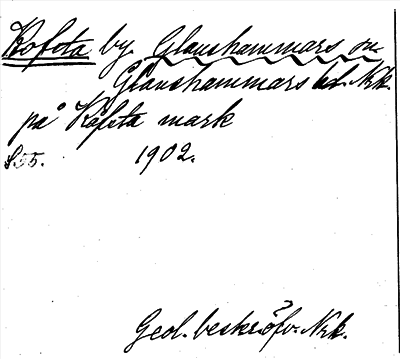 Kofsta by Glanshammars sn
Glanshammars hd. Nrk.
på Kofsta mark
S. 55. 1902.
Geol. beskrifv. Nrk.